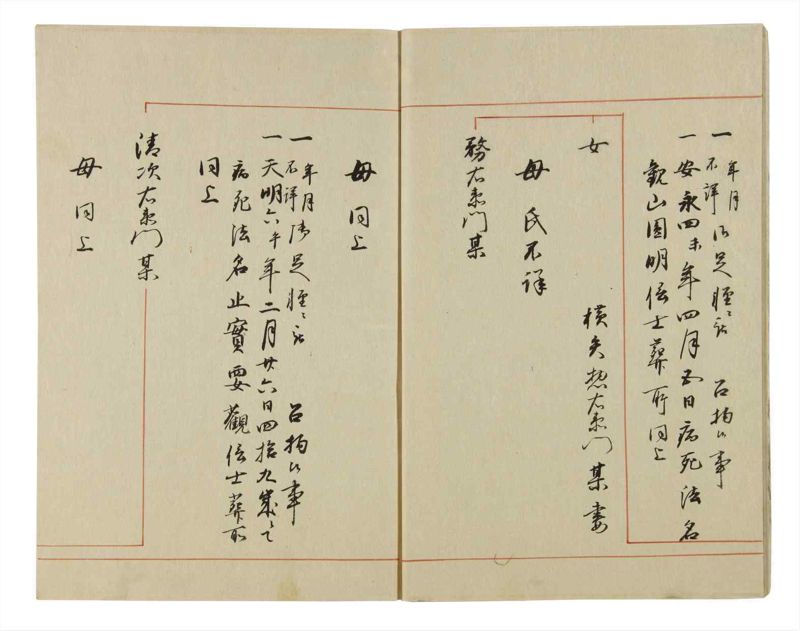 一 年月不詳 御足軽ニ而 召抱候事
一 安永四未年四月五日病死法名
観山園明信士葬所同上
女 横矢惣右衛門某妻
母氏不詳
務右衛門某
母同上
一 年月不詳 御足軽ニ而 召抱候事
一 天明六午年二月廿六日四拾九歳ニて
病死法名止實要觀信士葬所
同上
清次右衛門某
母同上